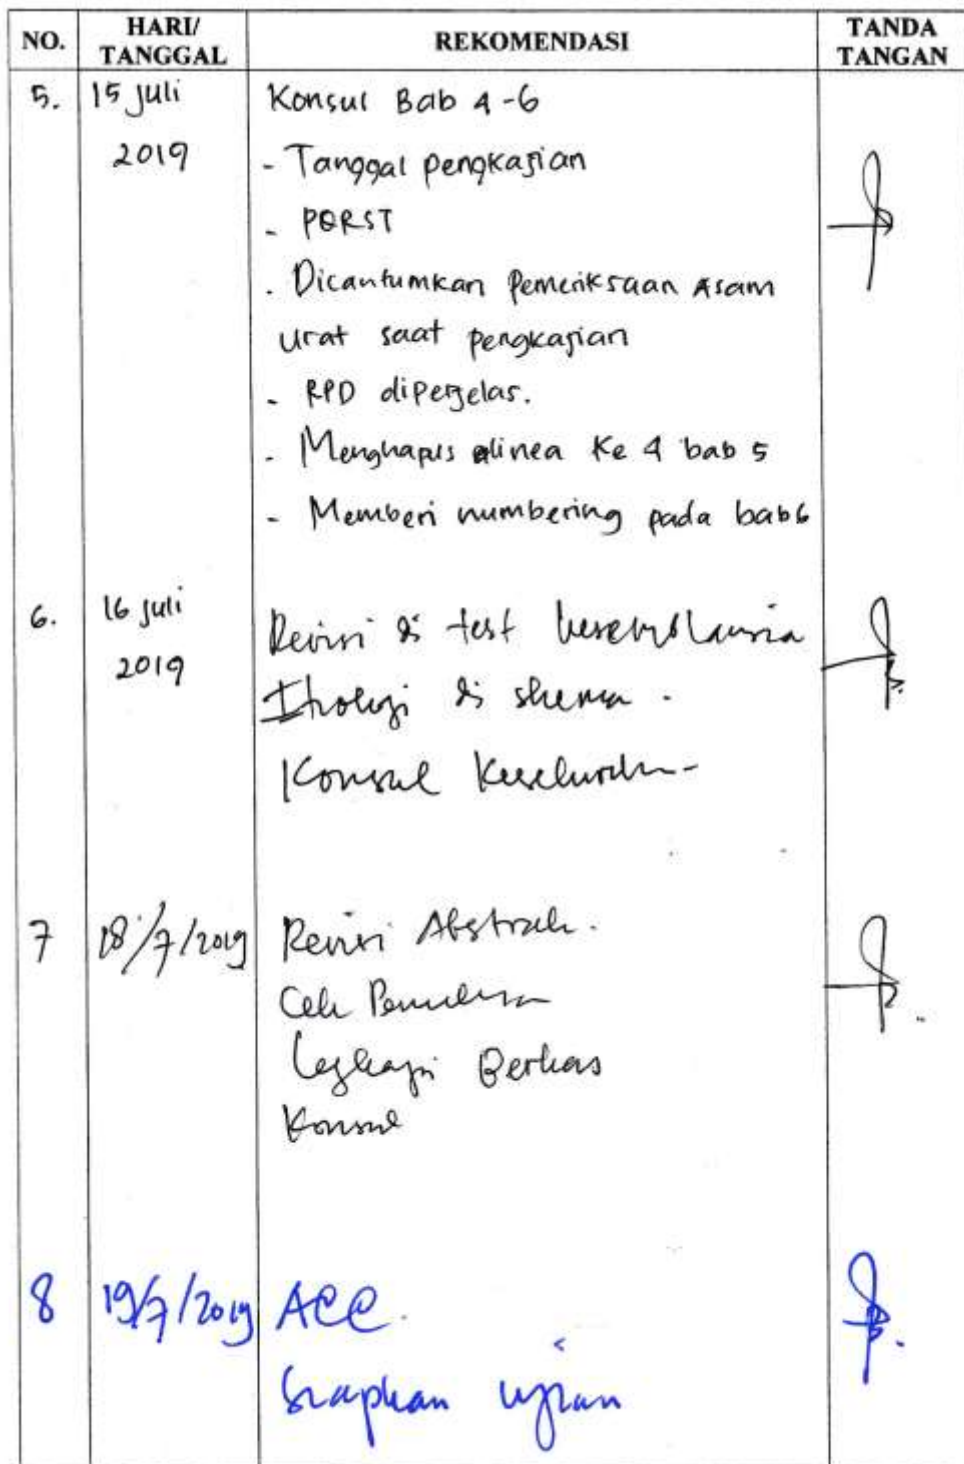 NO. HARI/ TANGGAL REKOMENDASI TANDA TANGAN
5. 15 Juli 2019 Konsul Bab 4-6
- Tanggal pengkajian
- PQRST
. Dicantumkan Pemeriksaan Asam
urat saat pengkajian
- RPD diperjelas.
- Menghapus alinea Ke 4 bab 5
- Memberi numbering pada bab 6
6. 16 Juli 2019 Revisi di test
di skema.
Konsul Keseluruhan
7 18/7/2019 Revisi Abstrak.
Cek Penulisan
Lengkapi Berkas
Konsul
8 19/7/2019 ACC.
Siapkan ujian